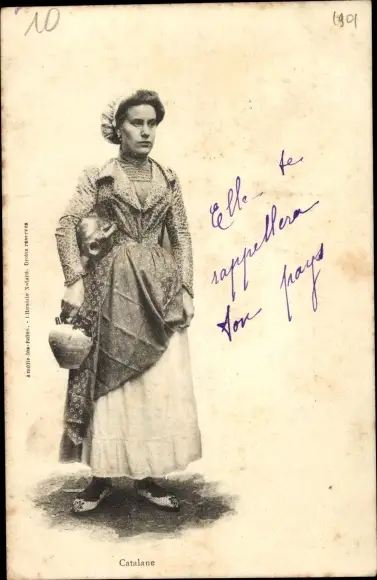 10
1901
Elle te
rappellera
ton pays
Amélie-les-Bains. - Librairie Xatard. Droits réservés
Catalane